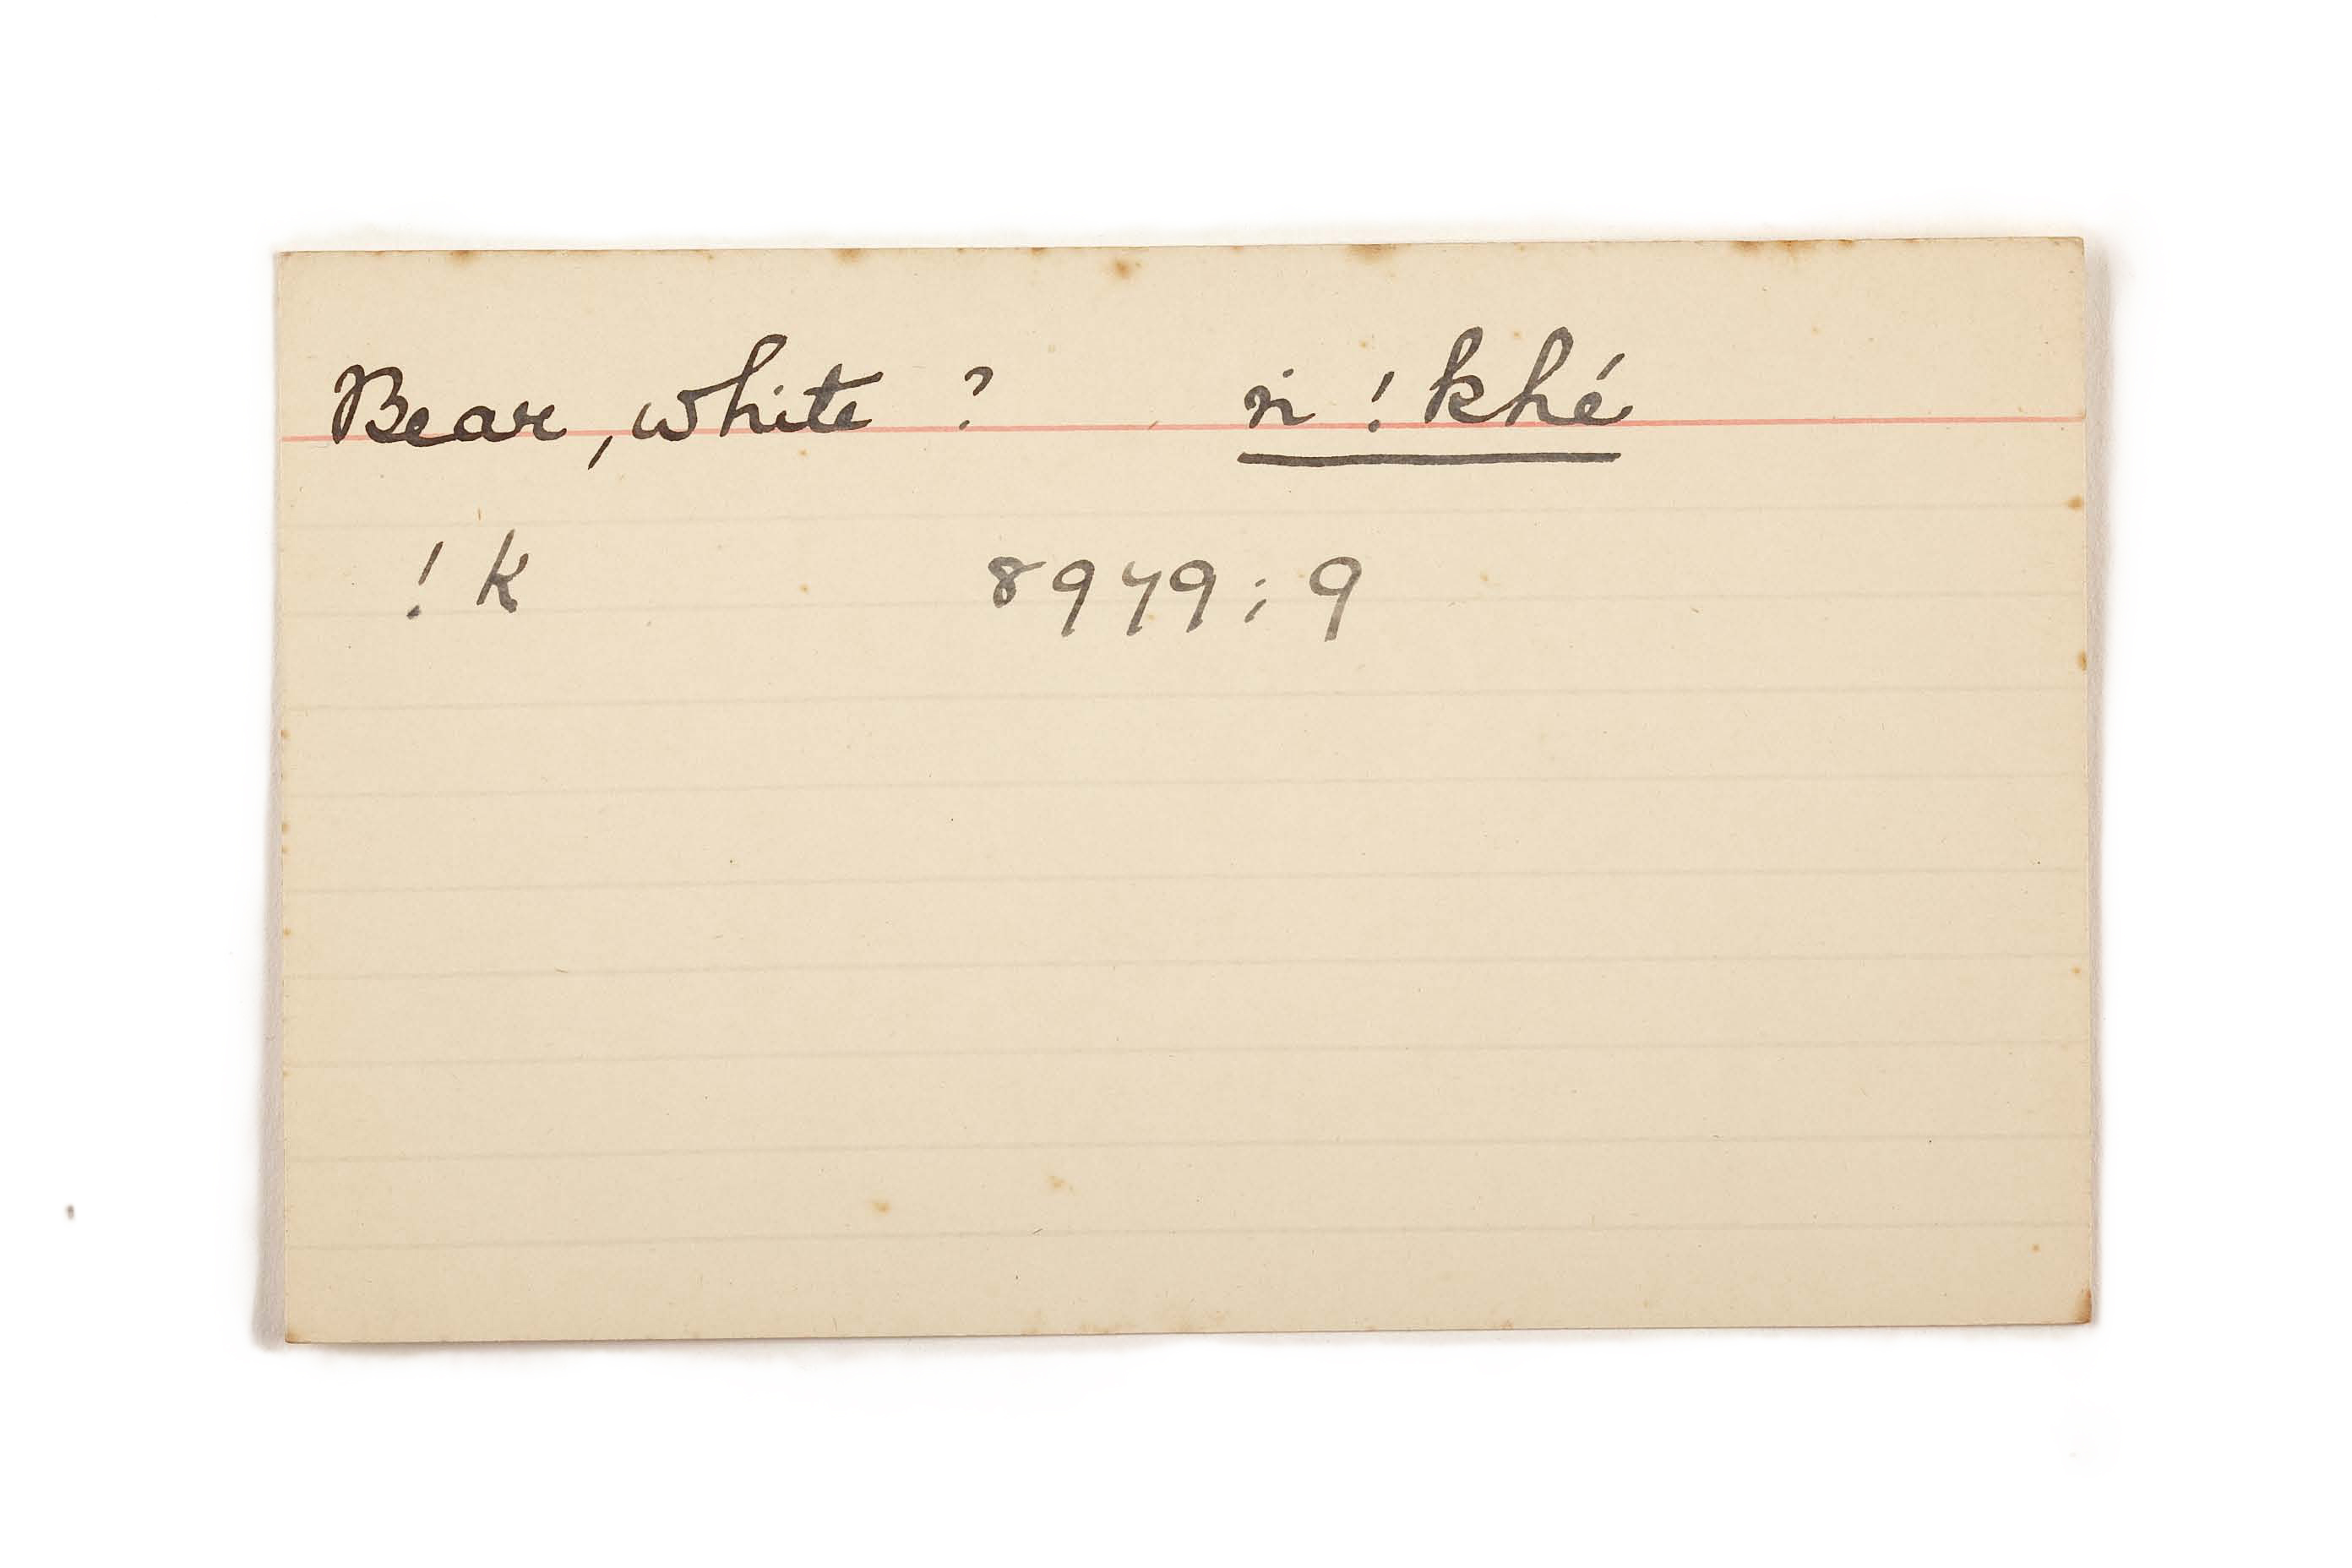 Bear, white ? ri !khé
! k 8979 ; 9